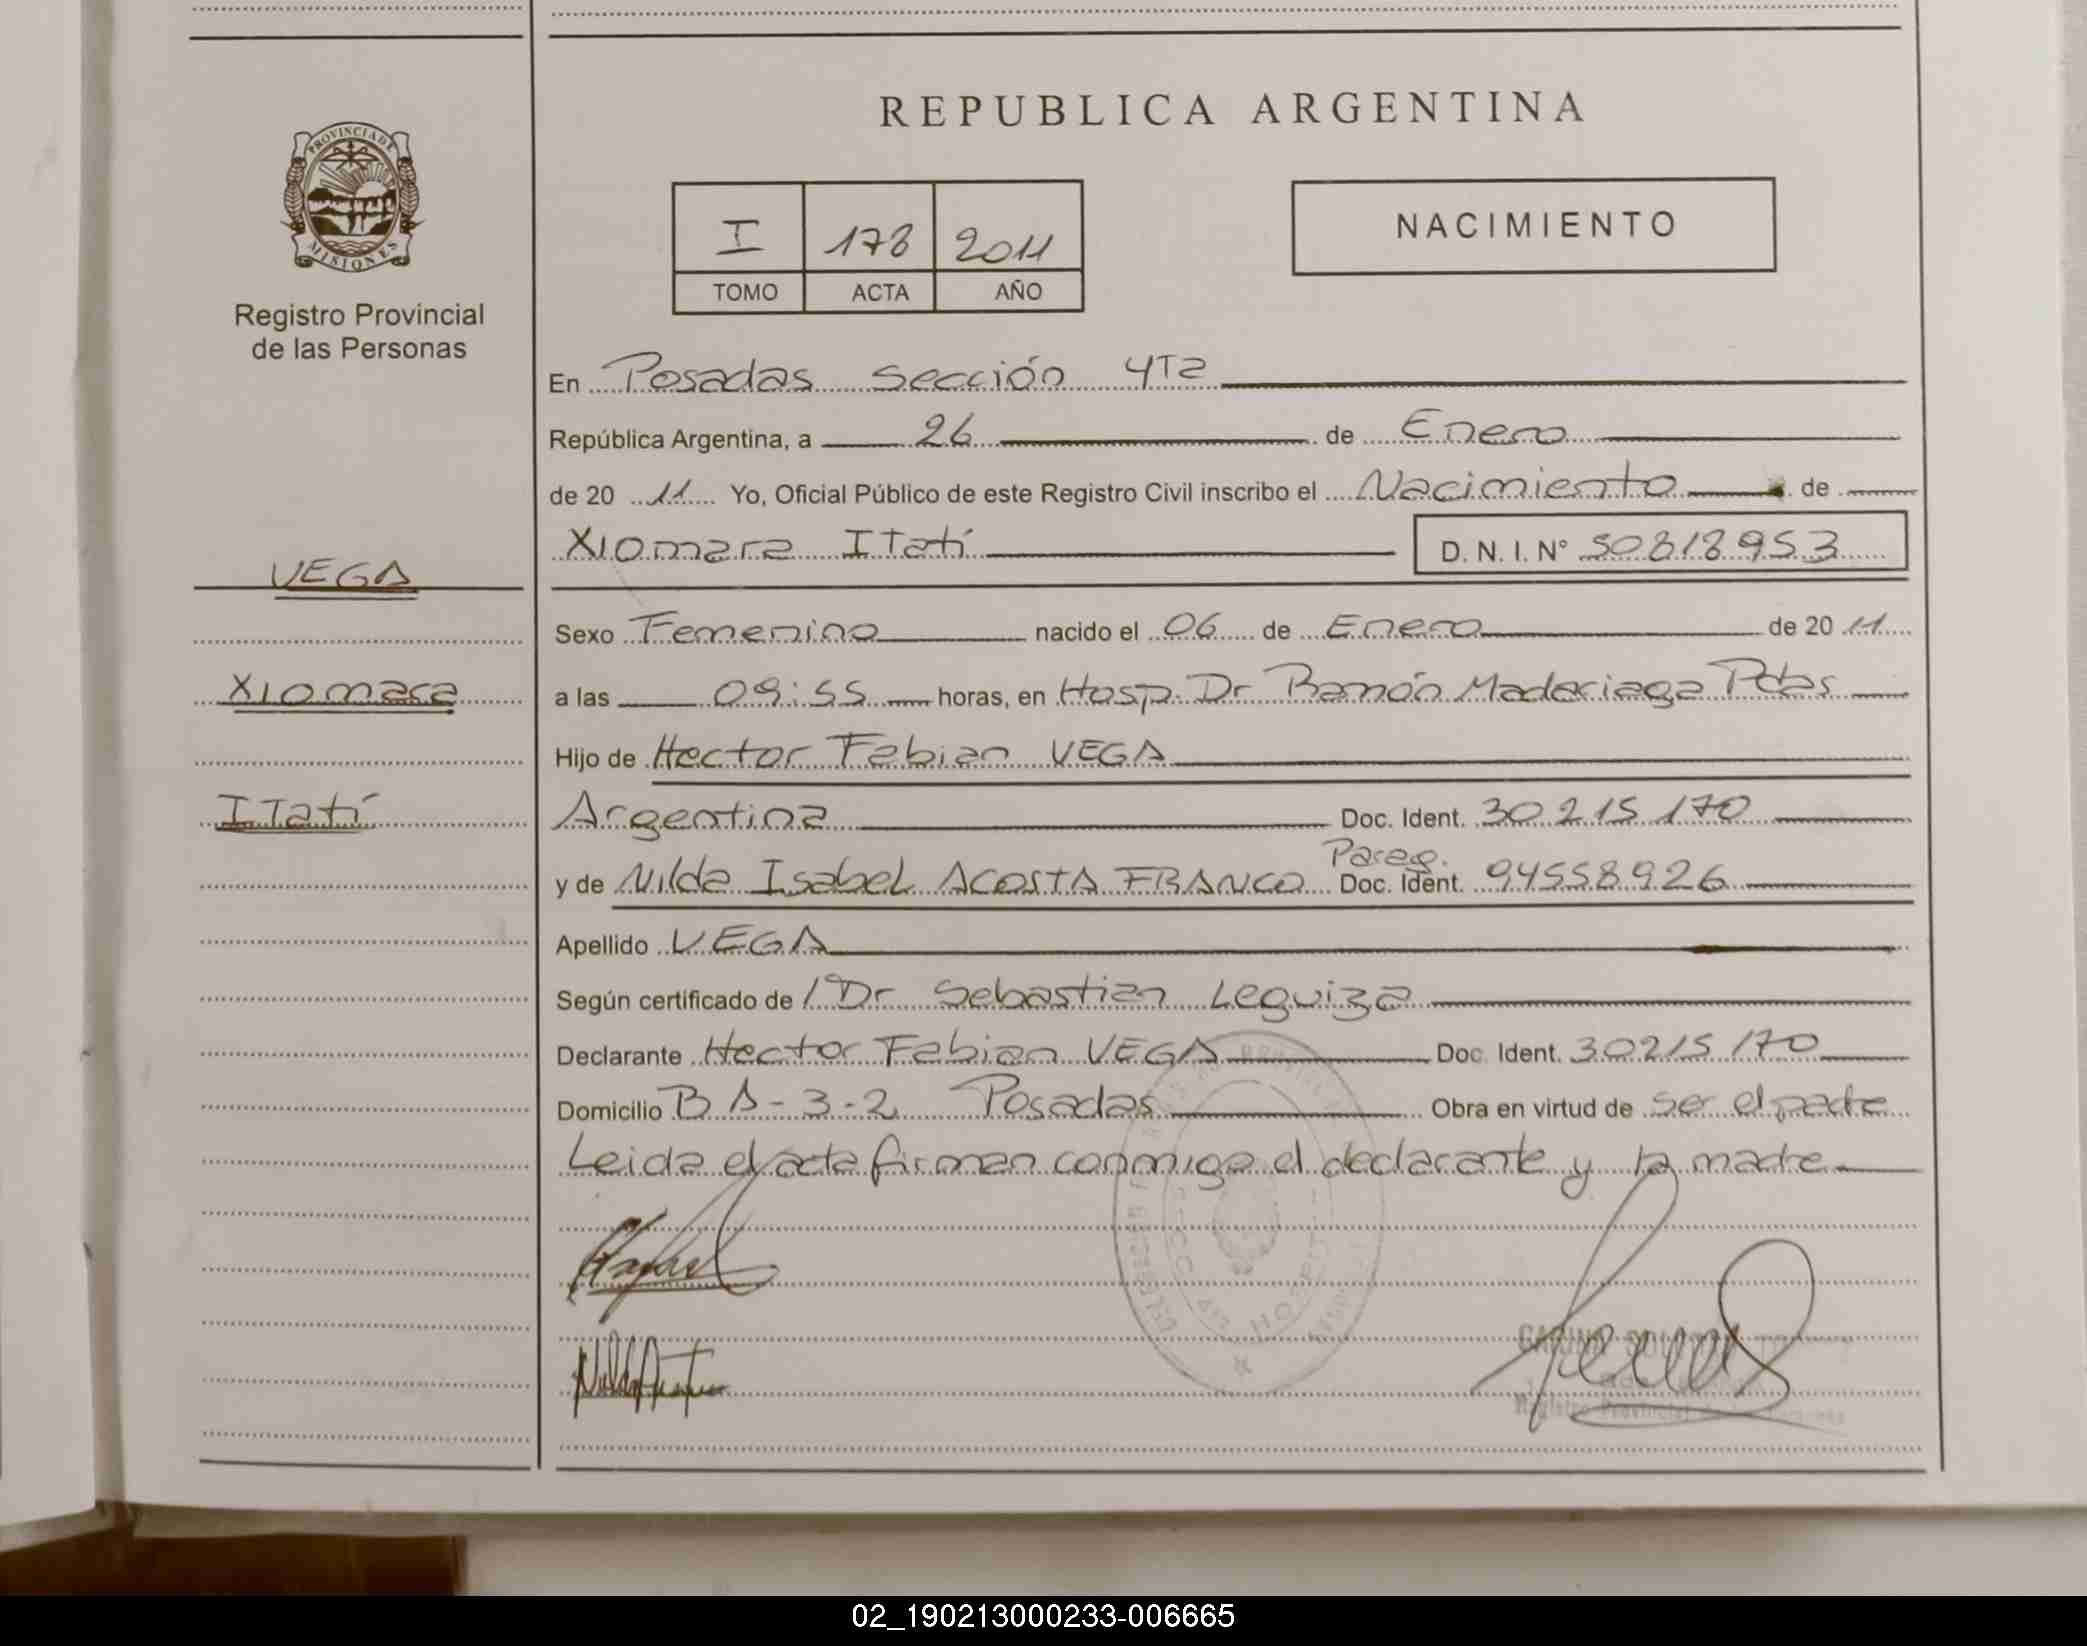 REPUBLICA ARGENTINA
PROVINCIA DE
MISIONES
Registro Provincial
de las Personas
I 178 2011
TOMO ACTA AÑO
NACIMIENTO
En Posadas Sección 4Ta
República Argentina, a 26 de Enero
de 20 11 Yo, Oficial Público de este Registro Civil inscribo el Nacimiento de
Xiomara Itatí D. N. I. N° 50818953
VEGA
Xiomara
Itatí
Sexo Femenino nacido el 06 de Enero de 20 11
a las 09:55 horas, en Hosp. Dr Ramón Madariaga Pdas
Hijo de Hector Fabian VEGA
Argentina Doc. Ident. 30 215 170
Parag.
y de Nilda Isabel ACOSTA FRANCO Doc. Ident. 94558926
Apellido VEGA
Según certificado de Dr Sebastian Leguiza
Declarante Hector Fabian VEGA Doc. Ident. 30215170
Domicilio B A-3-2 Posadas Obra en virtud de ser el padre
Leida el acta firman conmigo el declarante y la madre
Registro Provincial de las Personas
02_190213000233-006665